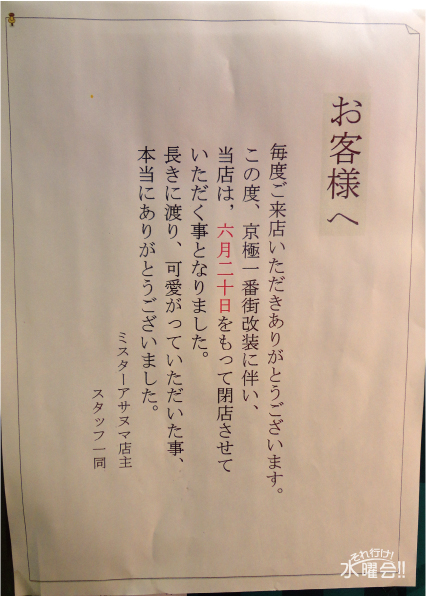 お客様へ
毎度ご来店いただきありがとうございます。
この度、京極一番街改装に伴い、
当店は，六月二十日をもって閉店させて
いただく事となりました。
長きに渡り、可愛がっていただいた事、
本当にありがとうございました。
ミスターアサヌマ店主
スタッフ一同
それ行け!
水曜会!!